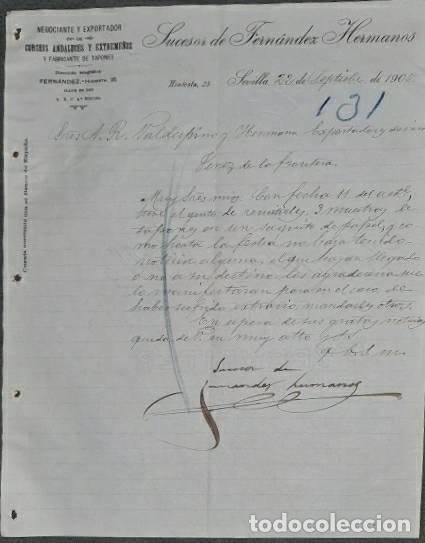 NEGOCIANTE Y EXPORTADOR
DE
CORCHOS ANDALUCES Y EXTREMEÑOS
Y FABRICANTE DE TAPONES
Dirección telegráfica
FERNÁNDEZ.-Hiniesta, 25
Sucesor de Fernández Hermanos
Hiniesta, 25 Sevilla 22 de Septbre de 190
131
Sres A. R. Valdespino y Hermano Exportadores de vinos
Jerez de la Frontera.
Muy Sres mios: Con fecha 11 del actl.
tuve el gusto de remitirles 3 muestras de
tapones en un saquito de papel, y co
mo hasta la fecha no haya tenido
noticia alguna, el que hayan llegado
o no a su destino les agradeceria me
lo manifestaran para en el caso de
haber sufrido extravio, mandarles otros.
En espera de sus gratas noticias
queda de V. su muy atto. s.s.
q. b. s. m.
Sucesor de
Fernandez Hermanos
Cuenta corriente con el Banco de España.
todocoleccion.net